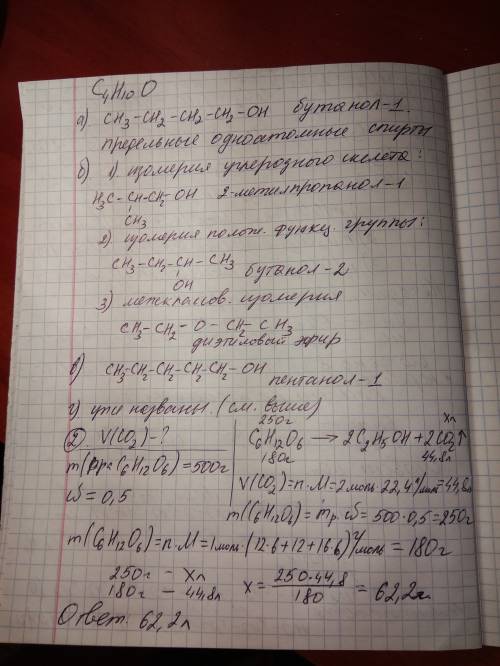 C4H10O
а) CH3-CH2-CH2-CH2-OH бутанол-1.
предельные одноатомные спирты
б) 1). изомерия углеродного скелета:
H3C-CH-CH2-OH 2-метилпропанол-1
CH3
2) изомерия полож. функц. группы:
CH3-CH2-CH-CH3
OH бутанол-2
3) межклассов. изомерия
CH3-CH2-O-CH2-CH3
диэтиловый эфир
в) CH3-CH2-CH2-CH2-CH2-OH
пентанол-1
г) уже названы. (см. выше)
② V(CO2)-?
m(р-ра C6H12O6)=500г
ω=0,5
250г Xл
C6H12O6 → 2C2H5OH+2CO2↑
180г 44,8л
V(CO2)=n·M=2моль·22,4л/моль=44,8л
m(C6H12O6)=mр·ω=500·0,5=250г
m(C6H12O6)=n·M=1моль·(12·6+12+16·6)г/моль=180г
250г - Xл
180г - 44,8л
X=250·44,8/180=62,2л
Ответ: 62,2л